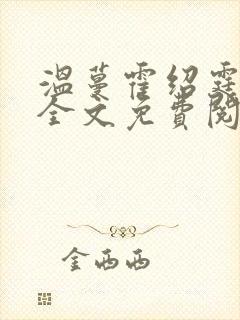 温蔓霍绍霆
全文免费阅
金西西